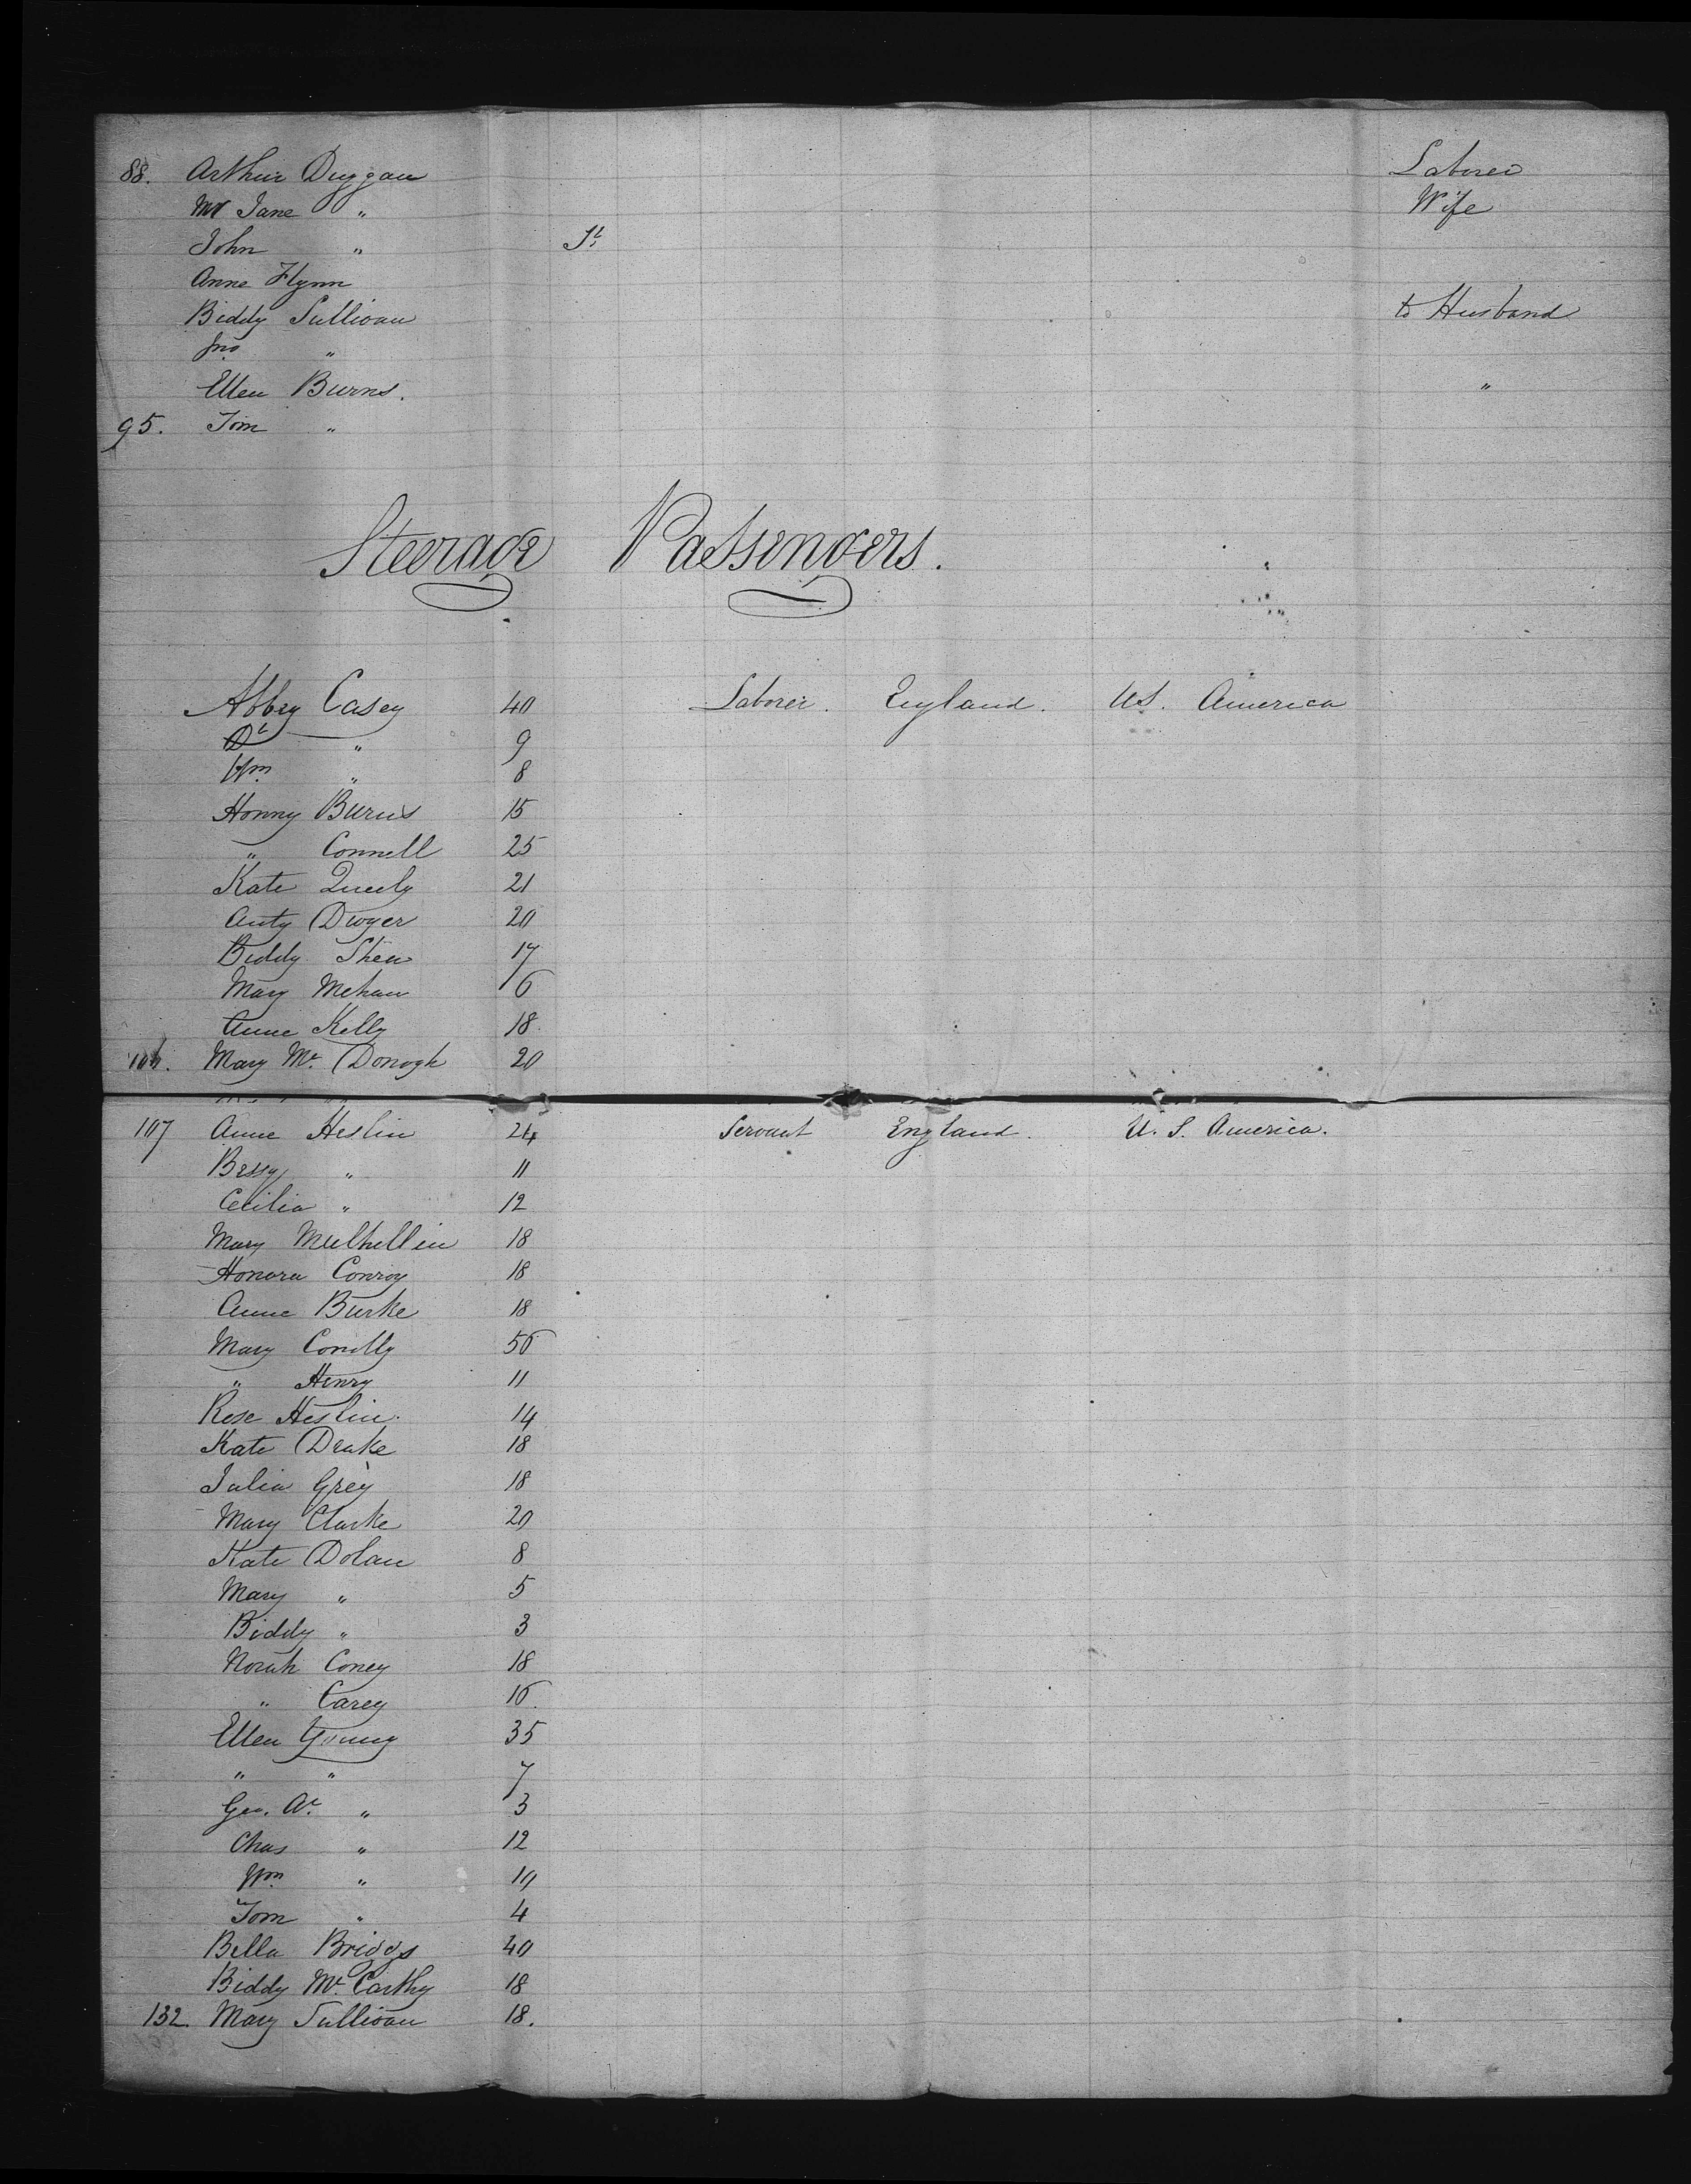 88. Arthur Duggan Laborer
Mr Jane " Wife
John "
Anne Flynn
Biddy Sullivan to Husband
Jno "
Ellen Burns. "
95. Tom "
Steerage Passengers.
Abbey Casey 40 Laborer. England. US. America
" 9
Wm " 8
Honny Burns 15
" Connell 25
Kate Queely 21
Anty Dwyer 20
Biddy Shea 17
Mary Mehan 16
Anne Kelly 18
106. Mary Mc Donogh 20
107 Anne Heslin 24 Servant England. U. S. America.
Bessy " 11
Cecilia " 12
Mary Mulhellin 18
Honora Conroy 18
Anne Burke 18
Mary Conolly 50
" Henry 11
Rose Heslin. 14
Kate Drake 18
Julia Grey 18
Mary Clarke 20
Kate Dolan 8
Mary " 5
Biddy " 3
Norah Coney 18
" Carey 16.
Ellen Young 35
" " 7
Geo. " 3
Chas " 12
Wm " 10
Tom " 4
Bella Briggs 40
Biddy Mc Carthy 18
132. Mary Sullivan 18.